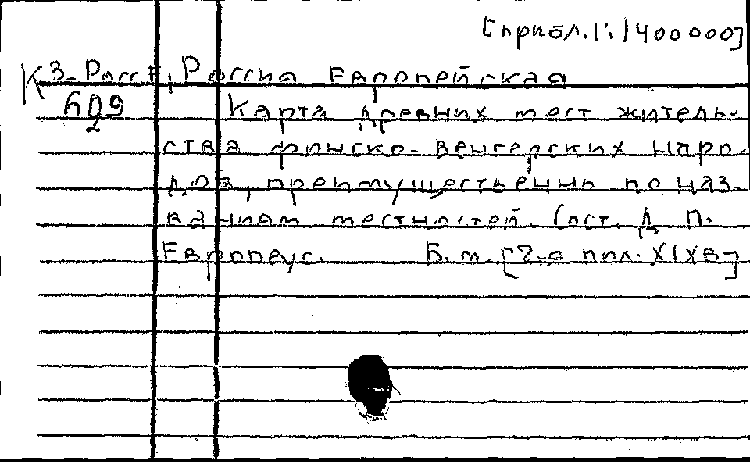 [прибл. 1:1400000]
К 3-Росс.Е, Россия Европейская
609
2
Карта древних мест житель-
ства финско-венгерских наро-
дов, преимущественно по наз-
ваниям местностей. Сост. Д. П.
Европеус. Б. м. [2-я пол. XIX в.]